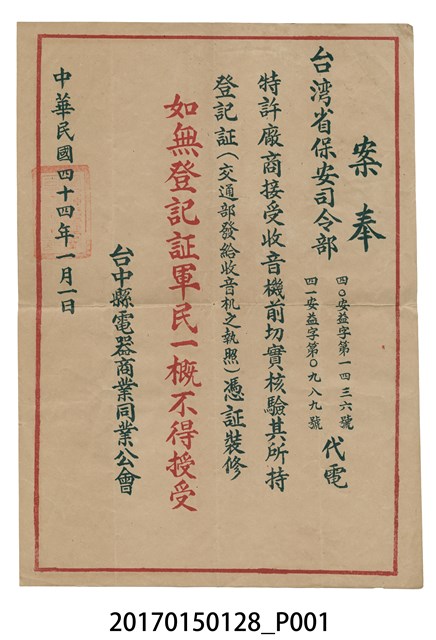 案奉
台湾省保安司令部
四〇安益字第一四三六號
四一安益字第〇九八九號
代電
特許廠商接受收音機前切實核驗其所持
登記証(交通部發給收音机之執照)憑証裝修
如無登記証軍民一概不得授受
台中縣電器商業同業公會
中華民國四十四年一月一日
20170150128_P001